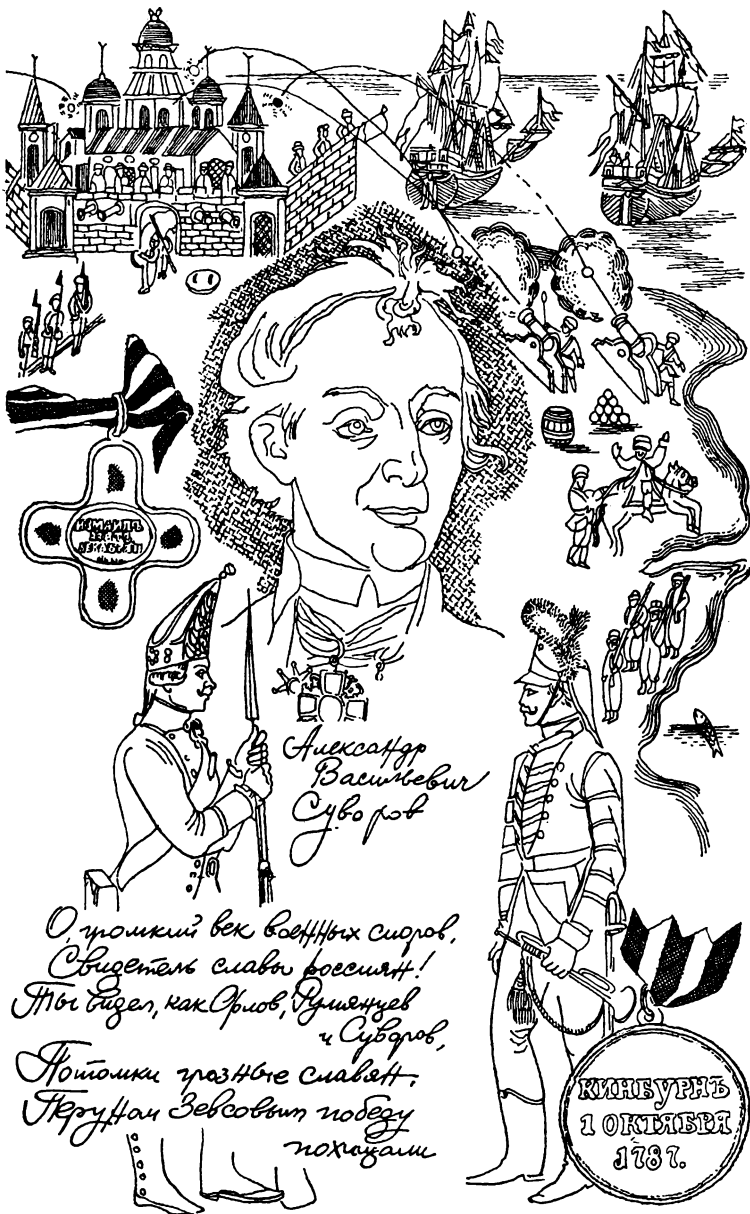 ИЗМАИЛЪ
ВЗЯТЪ
ДЕКАБРЯ 11
Александр
Васильевич
Суворов
О, громкий век военных споров,
Свидетель славы россиян!
Ты видел, как Орлов, Румянцев
и Суворов,
Потомки грозные славян,
Перуном Зевсовым победу
похищали
КИНБУРНЪ
1 ОКТЯБРЯ
1787.